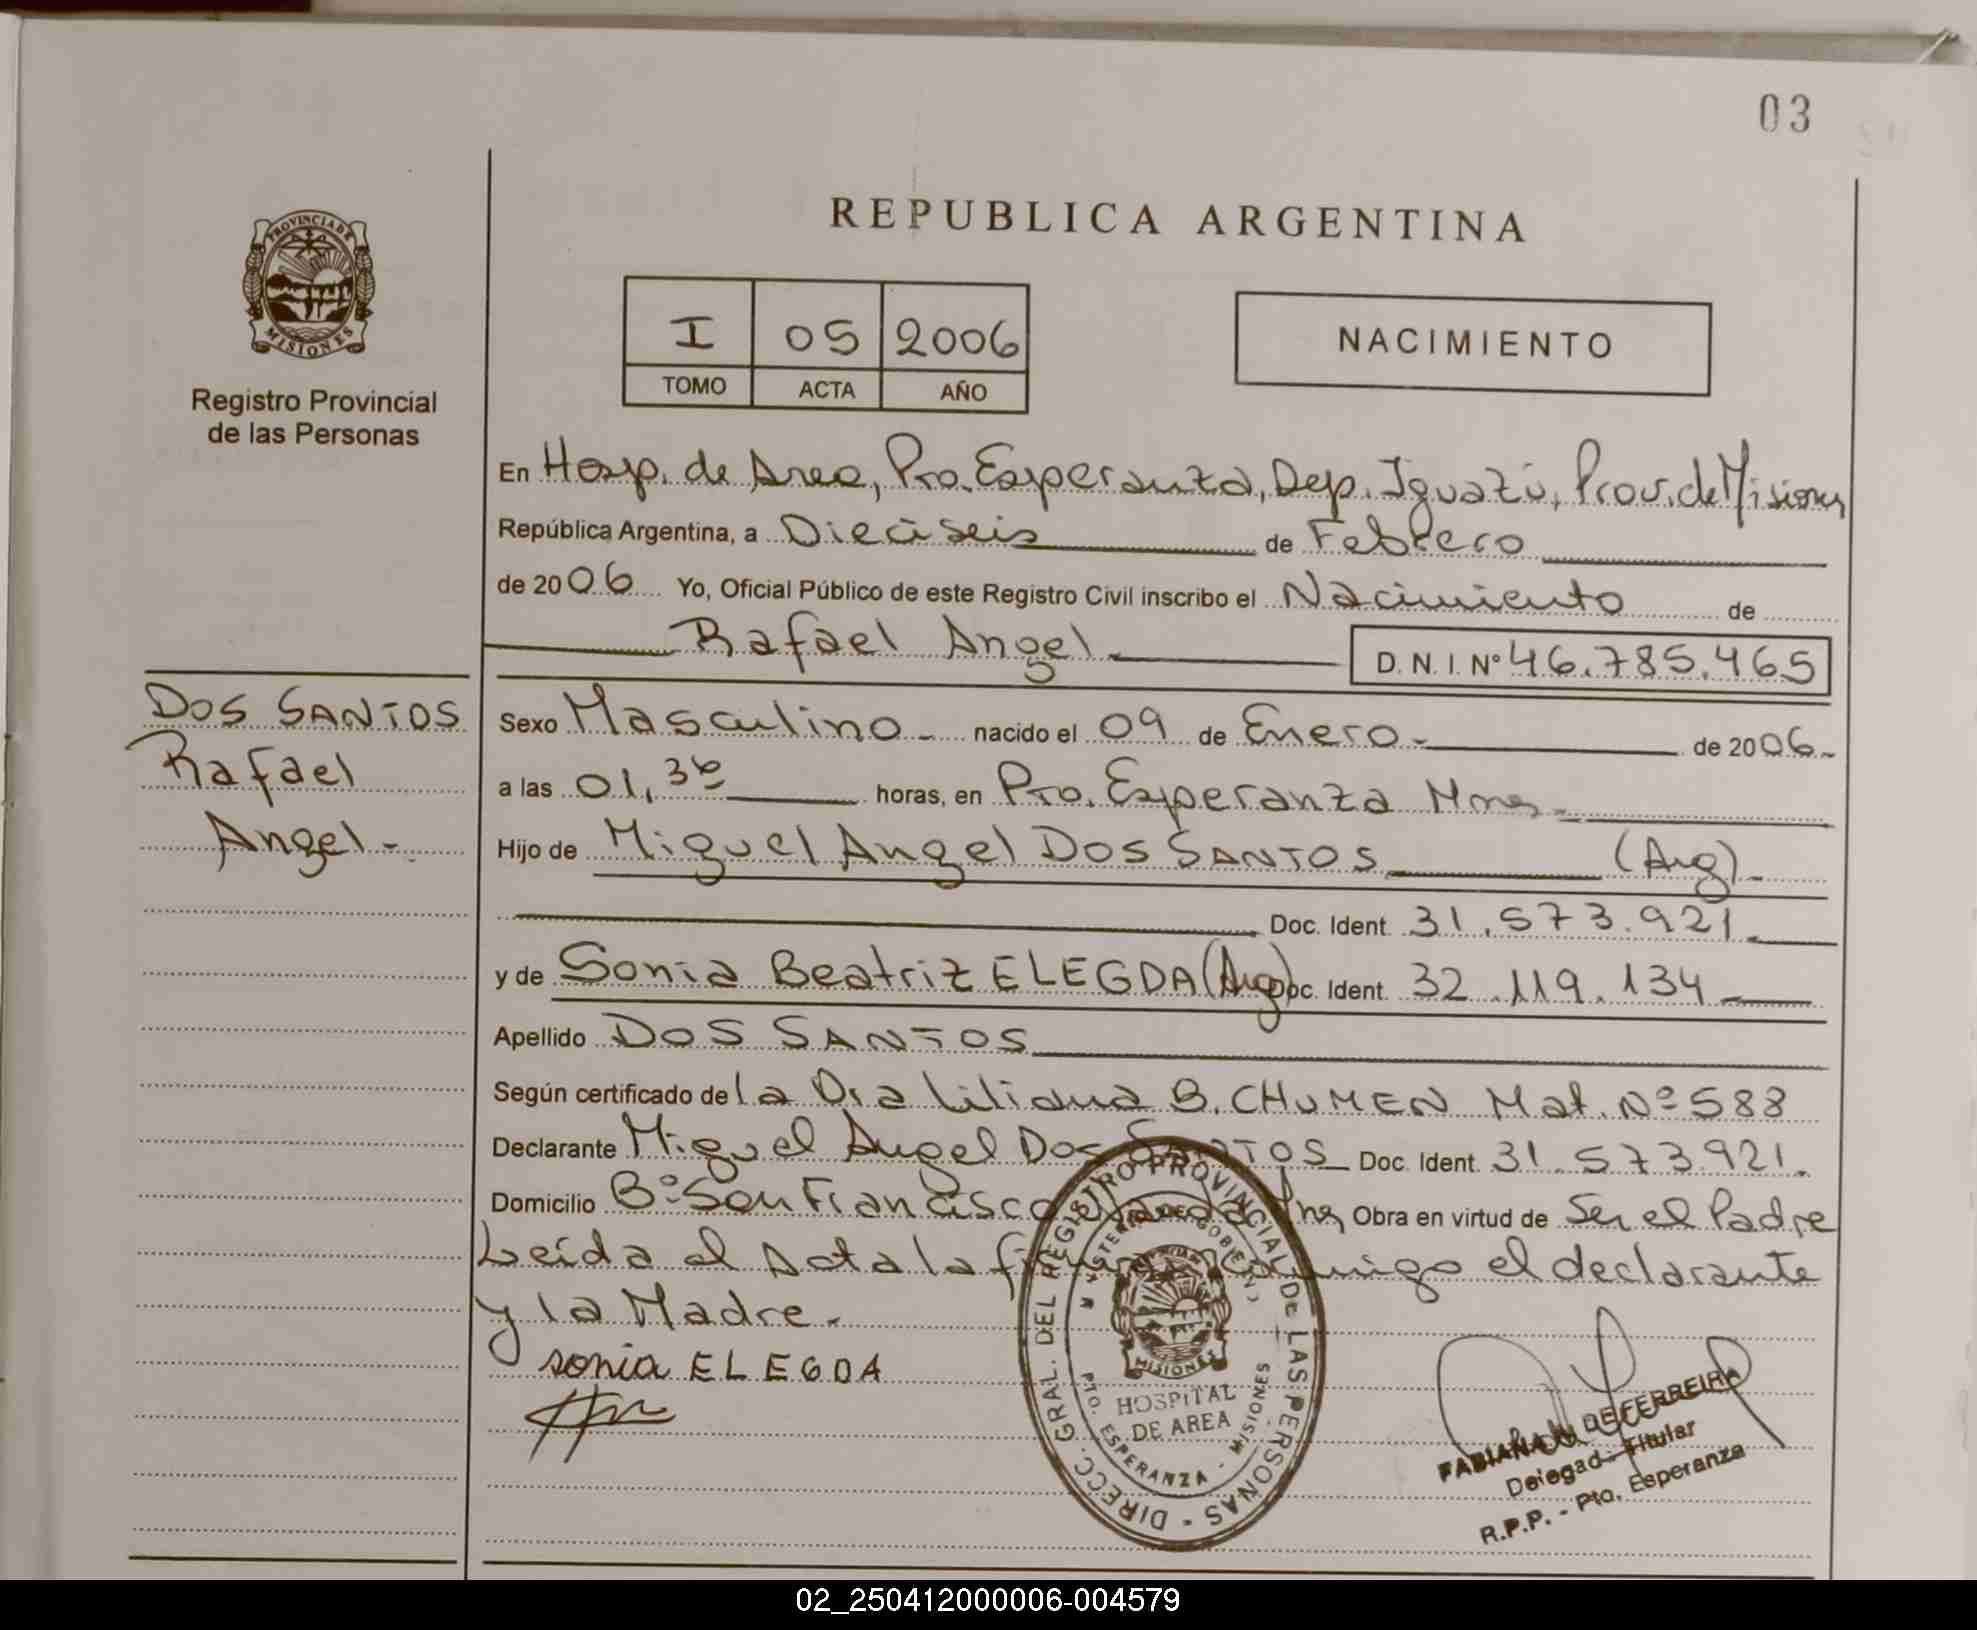 03
PROVINCIA DE
MISIONES
Registro Provincial
de las Personas
REPUBLICA ARGENTINA
I 05 2006
TOMO ACTA AÑO
NACIMIENTO
En Hosp. de Area, Pto. Esperanza, Dep. Iguazú, Prov. de Misiones
República Argentina, a Dieciseis de Febrero
de 2006 Yo, Oficial Público de este Registro Civil inscribo el Nacimiento de
Rafael Angel D.N.I. Nº 46.785.465
DOS SANTOS
Rafael
Angel.-
Sexo Masculino nacido el 09 de Enero.- de 2006.-
a las 01,36 horas, en Pto. Esperanza Mnes.
Hijo de Miguel Angel DOS SANTOS (Arg).-
Doc. Ident. 31.573.921.
y de Sonia Beatriz ELEGDA (Arg) Doc. Ident. 32.119.134
Apellido DOS SANTOS
Según certificado de la Dra Liliana B. CHUMEN Mat. Nº 588
Declarante Miguel Angel DOS SANTOS Doc. Ident. 31.573.921.
Domicilio Bº San Francisco Mnes Obra en virtud de Ser el Padre
Leída el Acta la firman conmigo el declarante
y la Madre.
sonia ELEGDA
DIRECC. GRAL. DEL REGISTRO PROVINCIAL DE LAS PERSONAS -
MINISTERIO DE GOBIERNO
MISIONES
HOSPITAL
DE AREA
PTO. ESPERANZA - MISIONES
FABIANA DE FERREIRA
Delegada Titular
R.P.P. - Pto. Esperanza
02_250412000006-004579